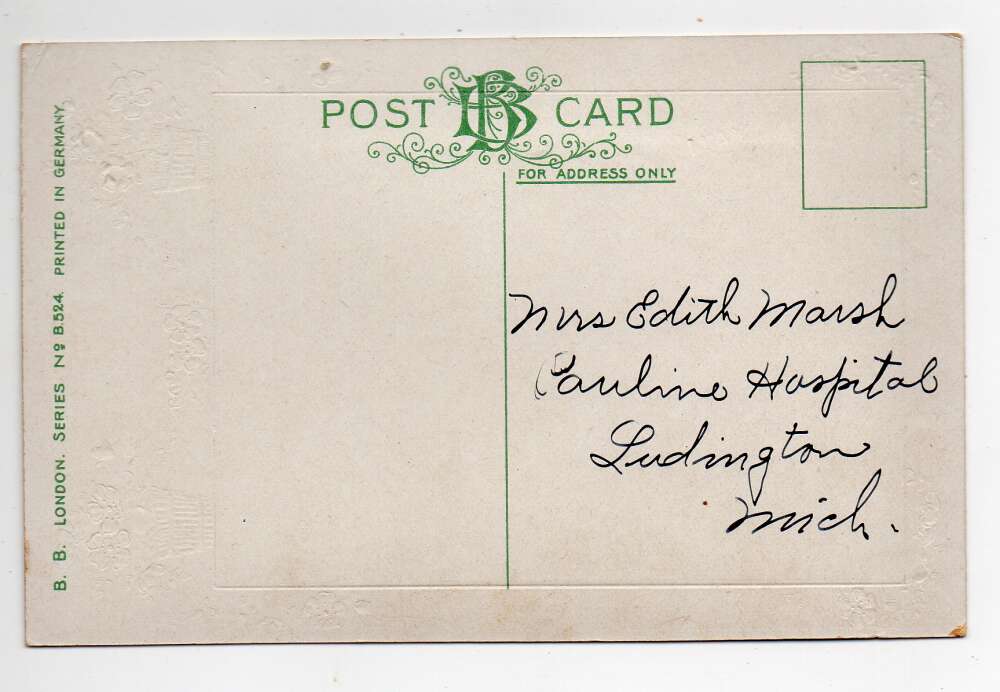 POST BB CARD
FOR ADDRESS ONLY
Mrs Edith Marsh
Pauline Hospital
Ludington
Mich.
B. B. LONDON. SERIES Nº B.524. PRINTED IN GERMANY.